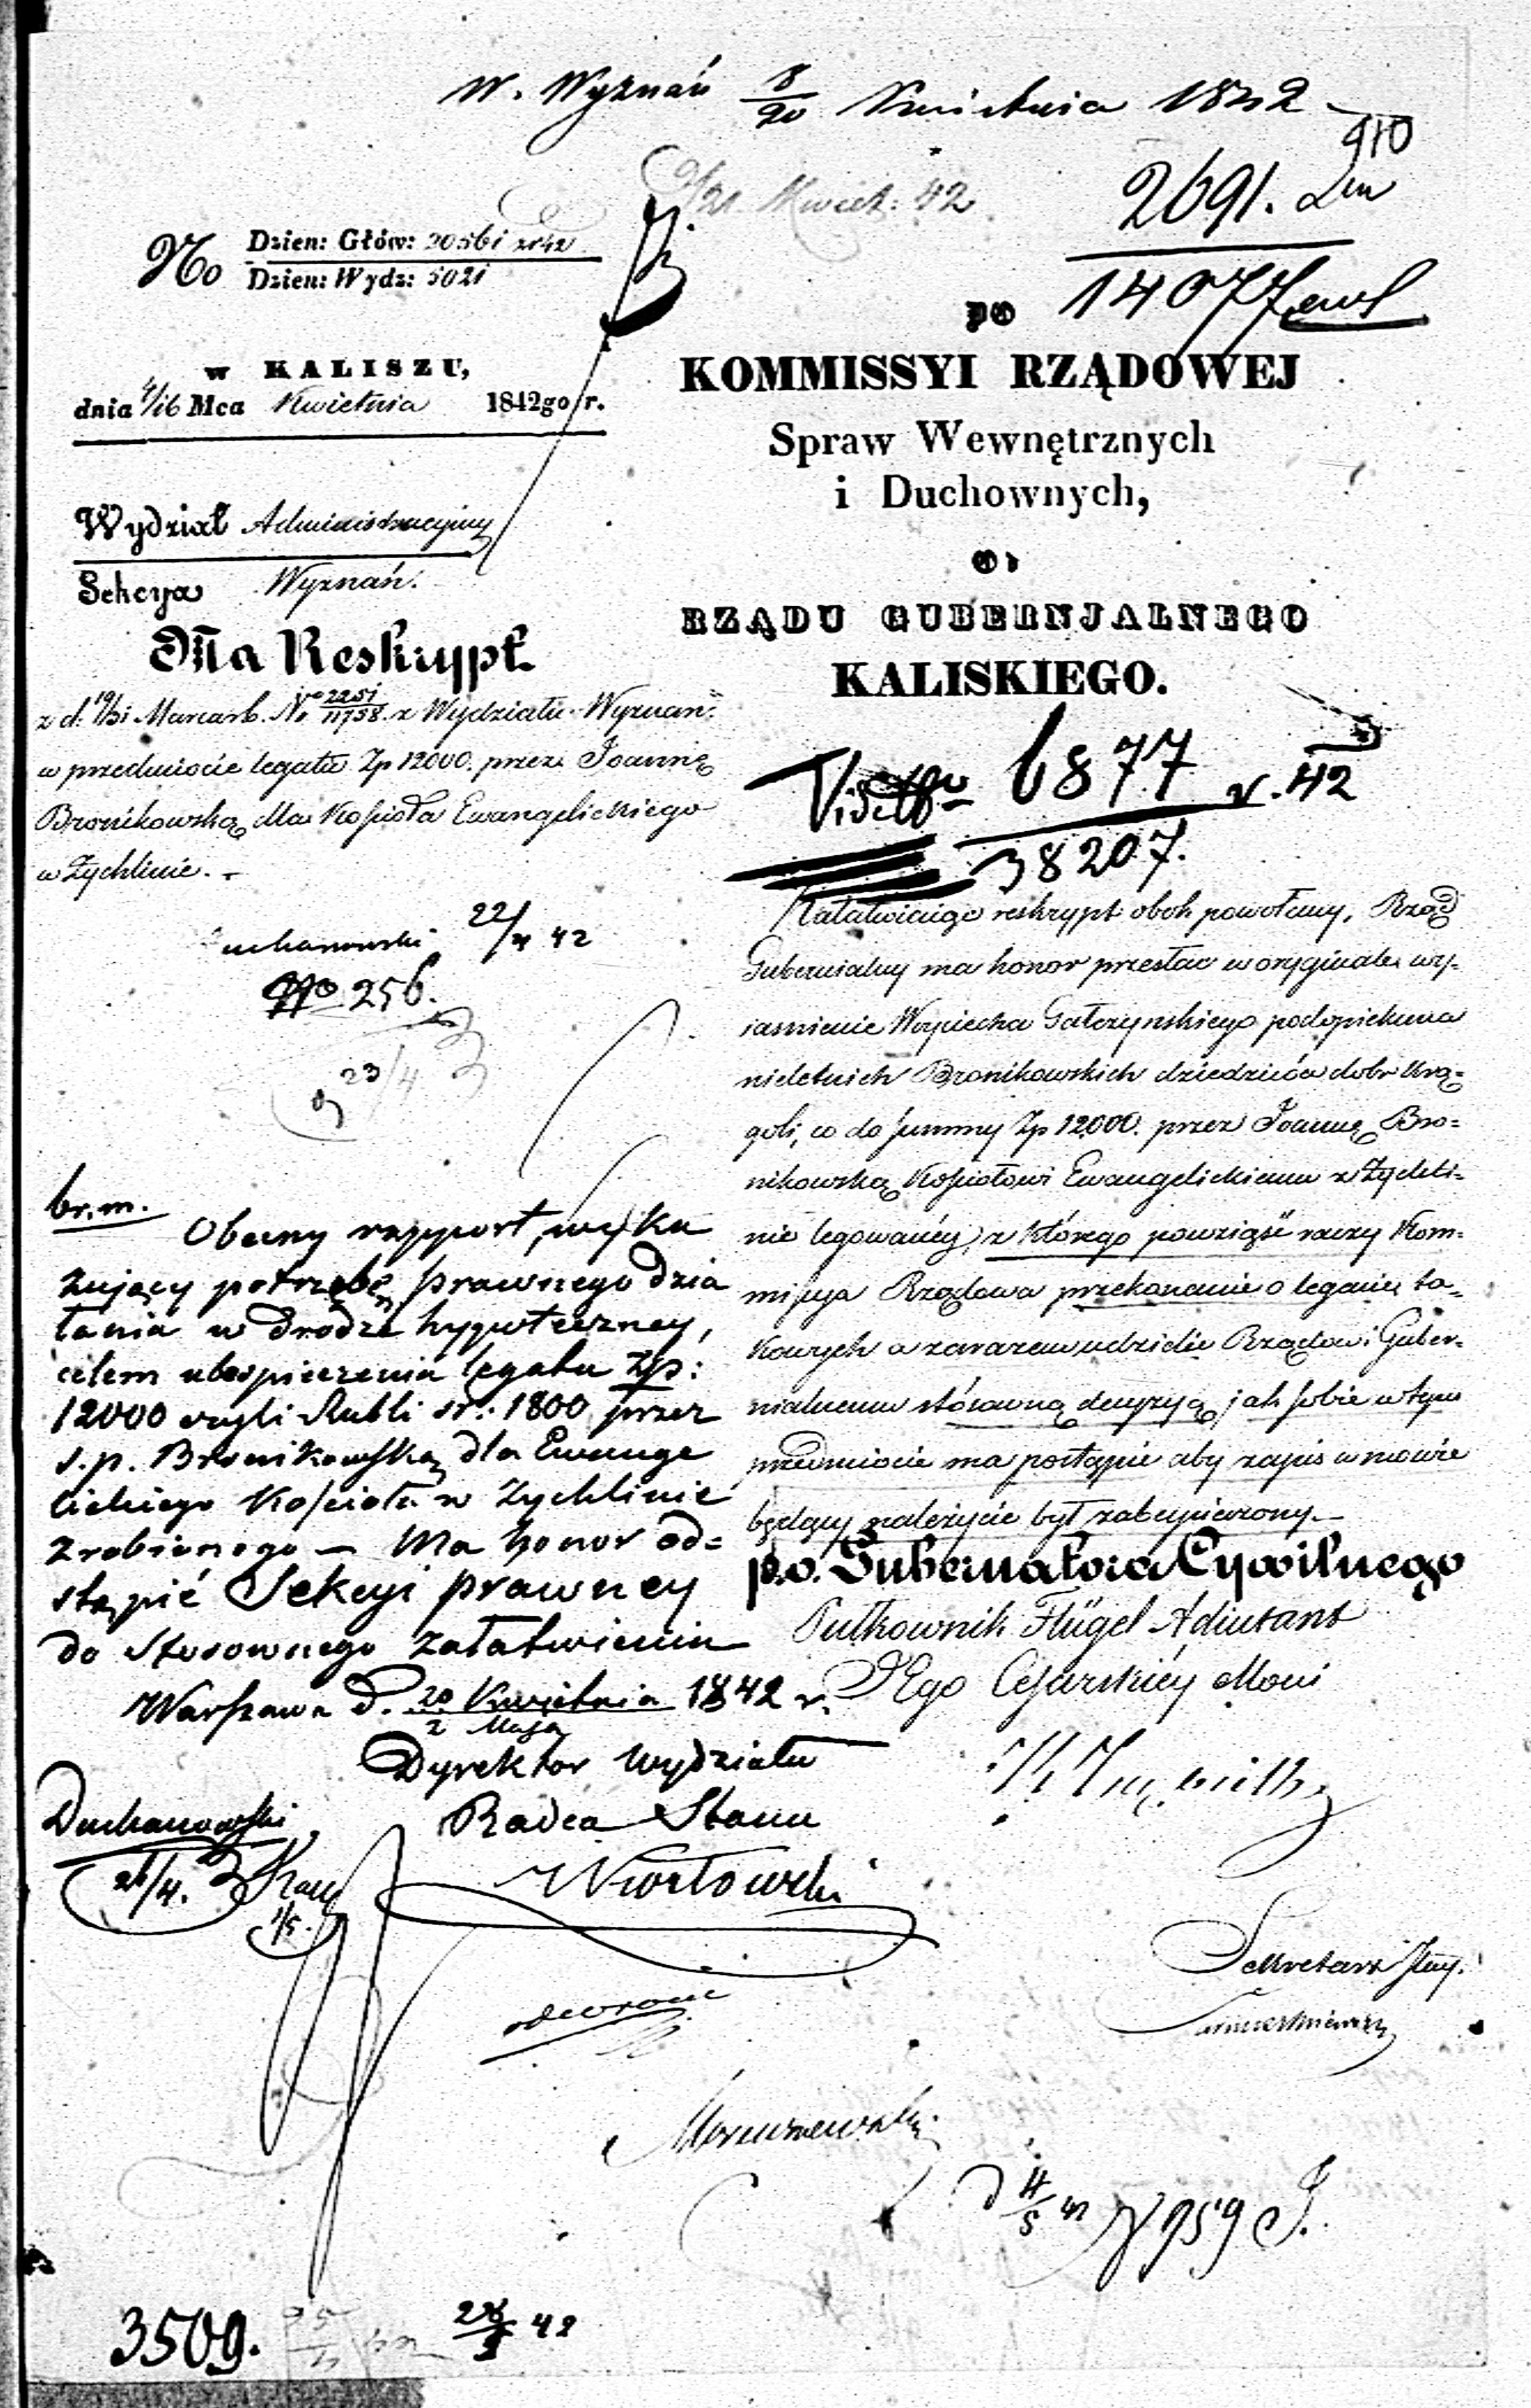 W. Wyznań 8/20 Kwietnia 1842
910
21 Kwiet: 42
2691.
14077
No Dzien: Głów: 20561
Dzien: Wydz: 5021
w KALISZU,
dnia 4/16 Mca Kwietnia 1842go r.
Wydział Administracyjny
Sekcya Wyznań.
Na Reskrypt
z d. 19/31 Marca r.b. No 2251/11758. z Wydziału Wyznań
w przedmiocie legatu Zp 12000. przez Joannę
Bronikowską dla Kościoła Ewangelickiego
w Żychlinie. -
22/4 42
No 256.
23/4
br. m.
Obecny rapport, wyka
zujący potrzebę prawnego dzia
łania w drodze hypoteczney,
celem ubespieczenia legatu Zp:
12000 czyli Rubli sr: 1800 przez
ś.p. Bronikowską dla Ewange
lickiego Kościoła w Żychlinie
zrobionego — Ma honor od=
stąpić Sekcyi prawney
do stosownego załatwienia
Warszawa d. 20 Kwietnia/2 Maja 1842 r.
Dyrektor Wydziału
Radca Stanu
Duchanowski
1/5.
PO
KOMMISSYI RZĄDOWEJ
Spraw Wewnętrznych
i Duchownych,
OD
RZĄDU GUBERNJALNEGO
KALISKIEGO.
Vide No 6877 r. 42
38207.
Załatwiając reskrypt obok powołany, Rząd
Gubernialny ma honor przesłać w oryginale wy-
iaśnienie Woyciecha Gałczynskiego podopiekuna
nieletnich Bronikowskich dziedziców dobr Krą=
goli, co do summy Zp 12,000. przez Joannę Bro=
nikowską Kościołowi Ewangelickiemu w Żychli-
nie legowanéy, z którego powziąść raczy Kom-
misyja Rządowa przekonanie o leganiu ta-
kowych a zarazem udzielić Rządowi Guber-
nialnemu stósowną decyzyą, jak sobie w tym
przedmiocie ma postąpić aby zapis w mowie
będący należycie był zabezpieczony. -
p.o. Gubernatora Cywilnego
Pułkownik Flügel Adiutant
JEgo Cesarskiéy Mości
Sekretarz Jlny.
d 4/5 42 N 959
3509.
42